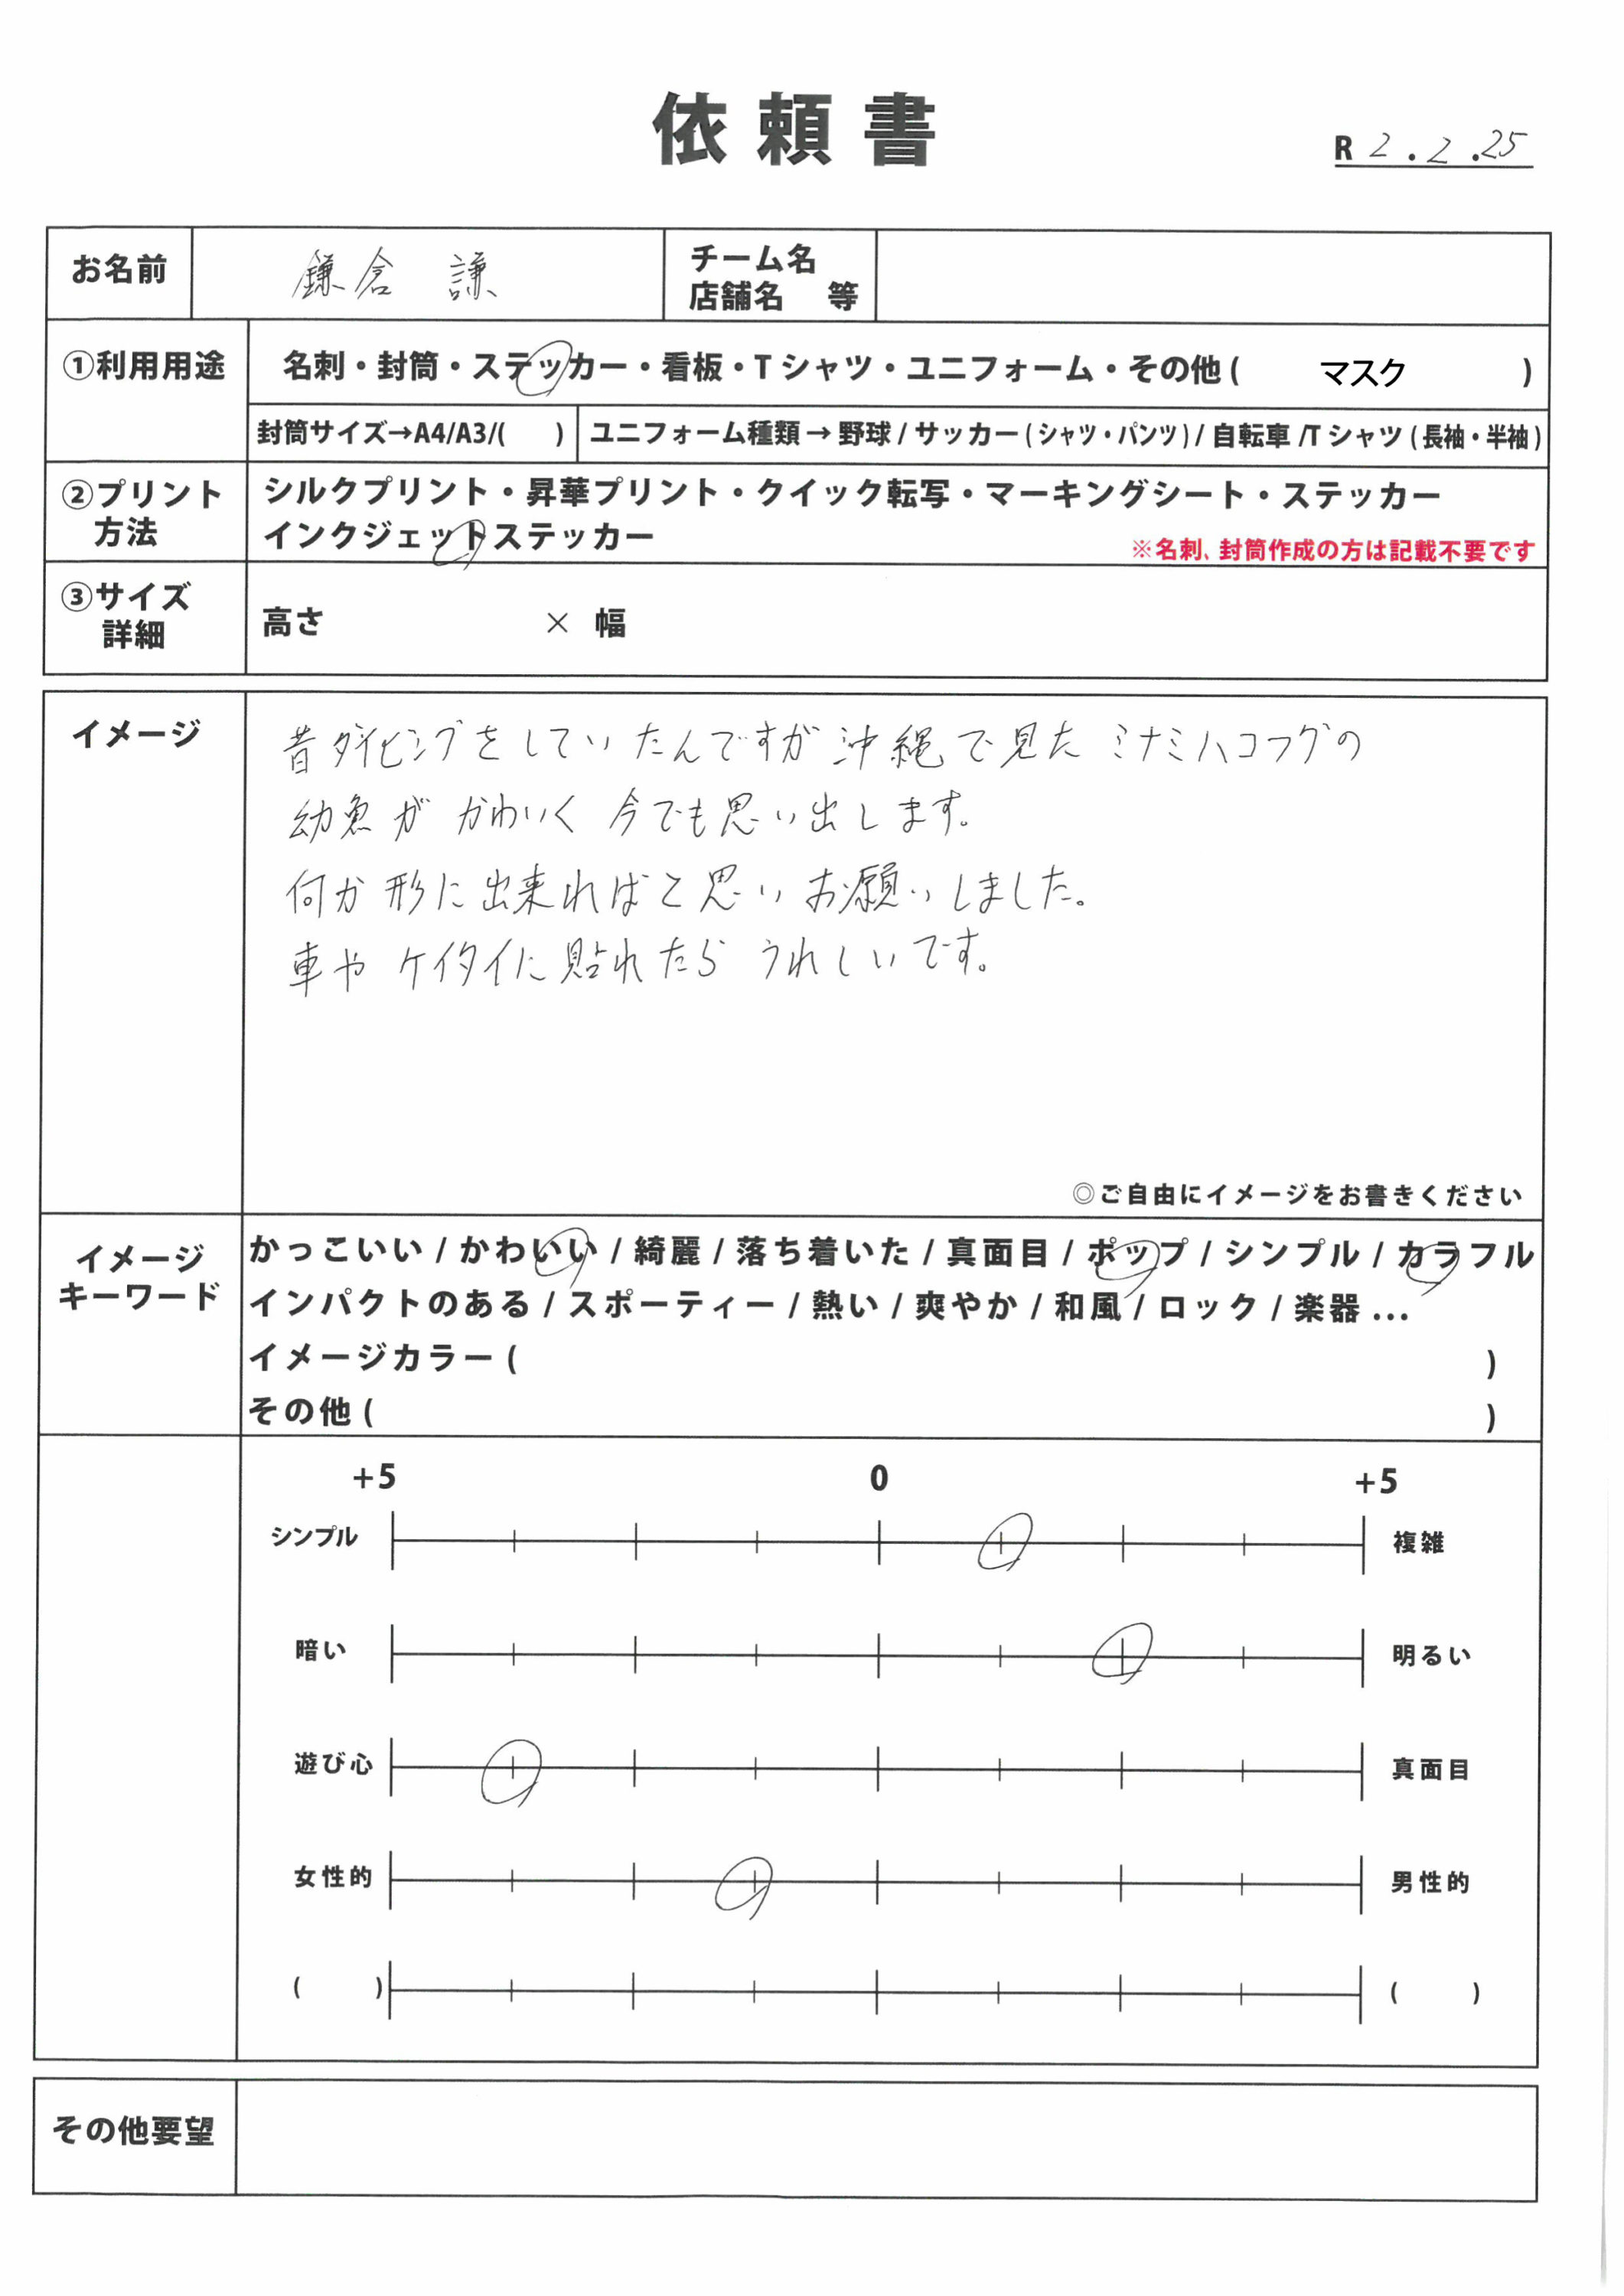 依頼書
R 2 . 2 . 25
お名前 鎌倉 謙 チーム名
店舗名 等
①利用用途 名刺・封筒・ステッカー・看板・Tシャツ・ユニフォーム・その他 ( マスク )
封筒サイズ→A4/A3/( ) ユニフォーム種類→野球 / サッカー ( シャツ・パンツ ) / 自転車 /Tシャツ ( 長袖・半袖 )
②プリント シルクプリント・昇華プリント・クイック転写・マーキングシート・ステッカー
方法 インクジェットステッカー ※名刺、封筒作成の方は記載不要です
③サイズ
詳細 高さ × 幅
イメージ 昔ダイビングをしていたんですが 沖縄で見た ミナミハコフグの
幼魚が かわいく 今でも思い出します。
何か形に出来ればと思い お願いしました。
車や ケイタイに 貼れたら うれしいです。
◎ご自由にイメージをお書きください
イメージ
キーワード
かっこいい / かわいい / 綺麗 / 落ち着いた / 真面目 / ポップ / シンプル / カラフル
インパクトのある / スポーティー / 熱い / 爽やか / 和風 / ロック / 楽器 …
イメージカラー ( )
その他 ( )
+5 0 +5
シンプル 複雑
暗い 明るい
遊び心 真面目
女性的 男性的
( ) ( )
その他要望